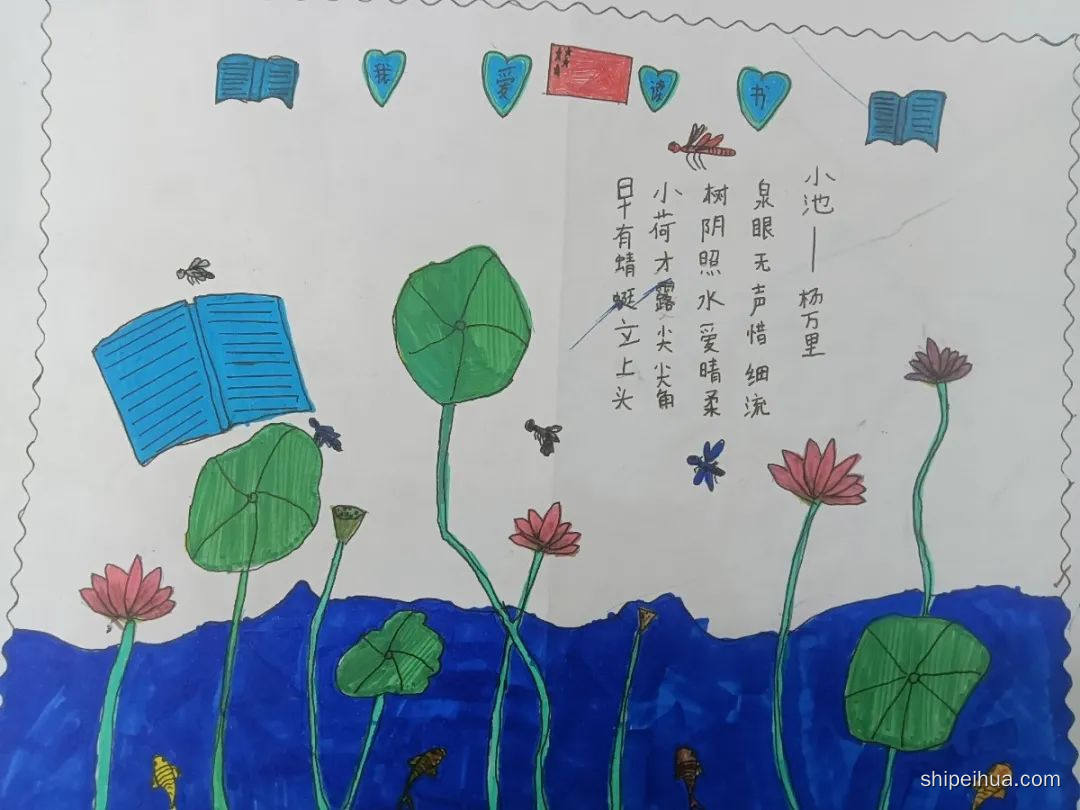 我爱读书
小池——杨万里
泉眼无声惜细流
树阴照水爱晴柔
小荷才露尖尖角
早有蜻蜓立上头
shipeihua.com